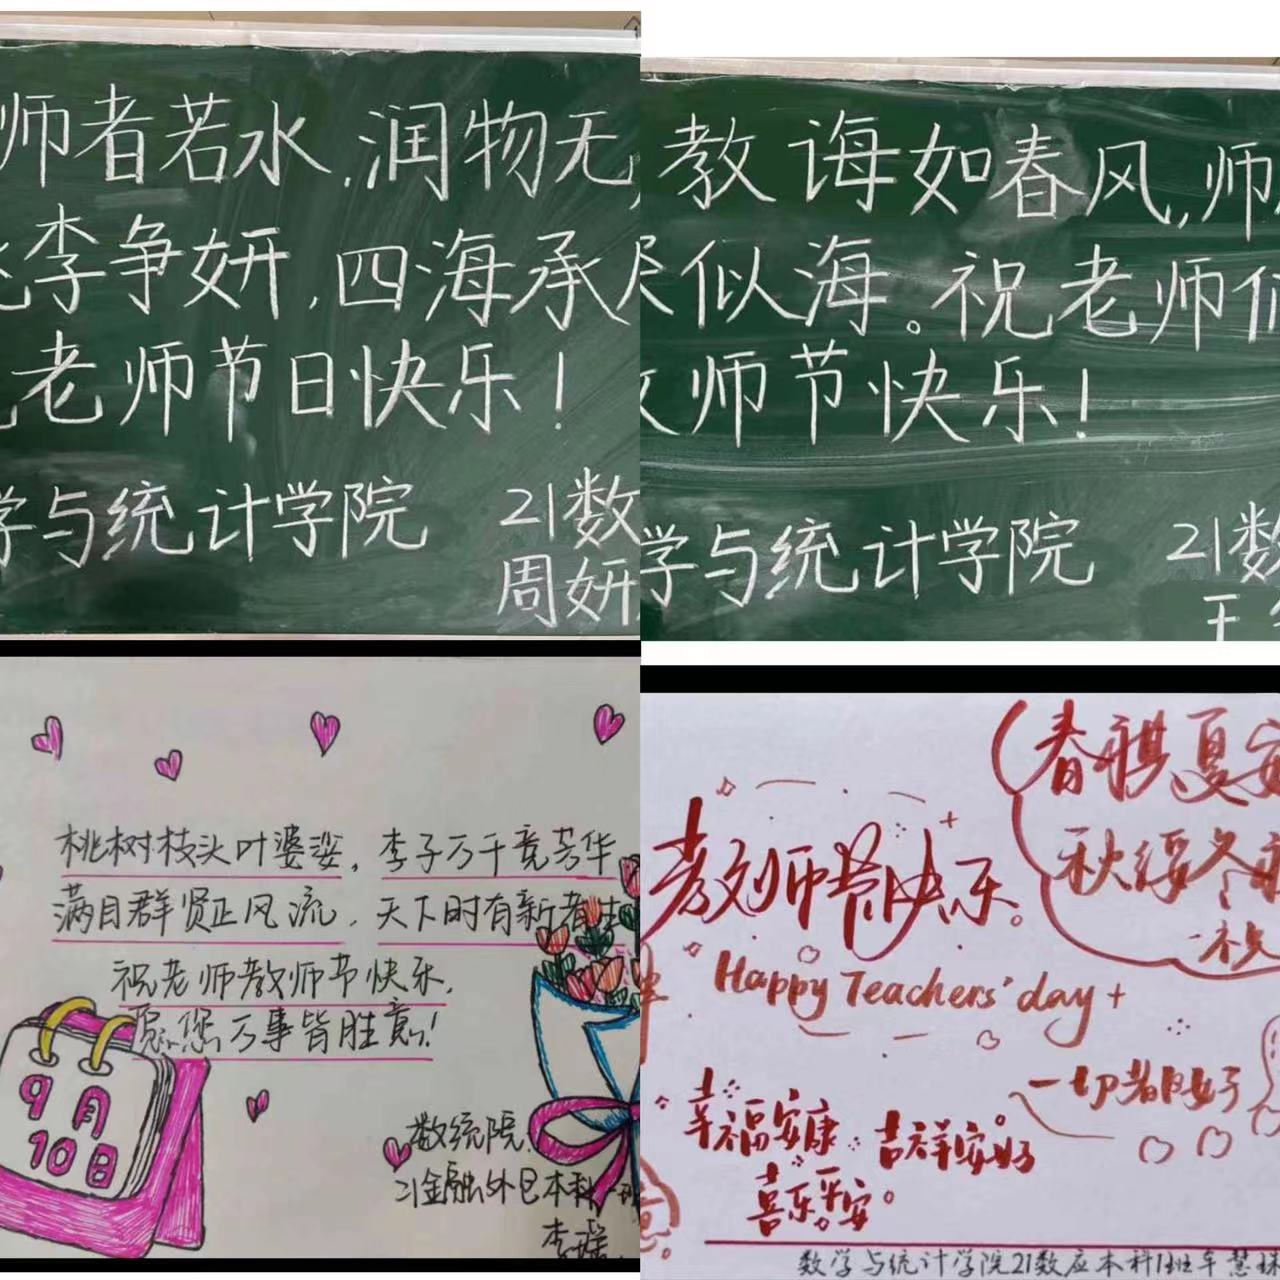 师者若水,润物无
李争妍,四海承
老师节日快乐!
学与统计学院 21数
周妍
教诲如春风,师
似海。祝老师
师节快乐!
学与统计学院 21数
王
桃树枝头叶婆娑,李子万千竞芳华
满目群贤正风流,天下时有新者生
祝老师教师节快乐,
愿您万事皆胜意!
9月
10日
数统院
21金融外包本科一班
李瑶
春祺夏安
秋绥冬
祝
教师节快乐。
Happy Teachers' day
一切都好
幸福安康 吉祥安好。
喜乐平安。
数学与统计学院21数应本科1班车慧珠